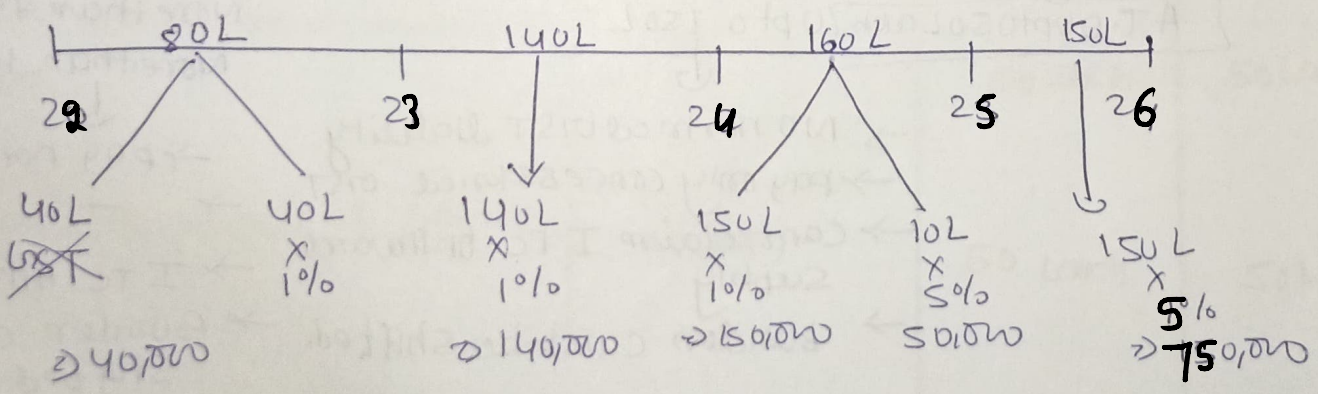 80L 140L 160L 150L
22 23 24 25 26
40L 40L 140L 150L 10L 150L
GST x x x x x
1% 1% 1% 5% 5%
⇒ 40,000 ⇒ 140,000 ⇒ 150,000 50,000 ⇒ 750,000